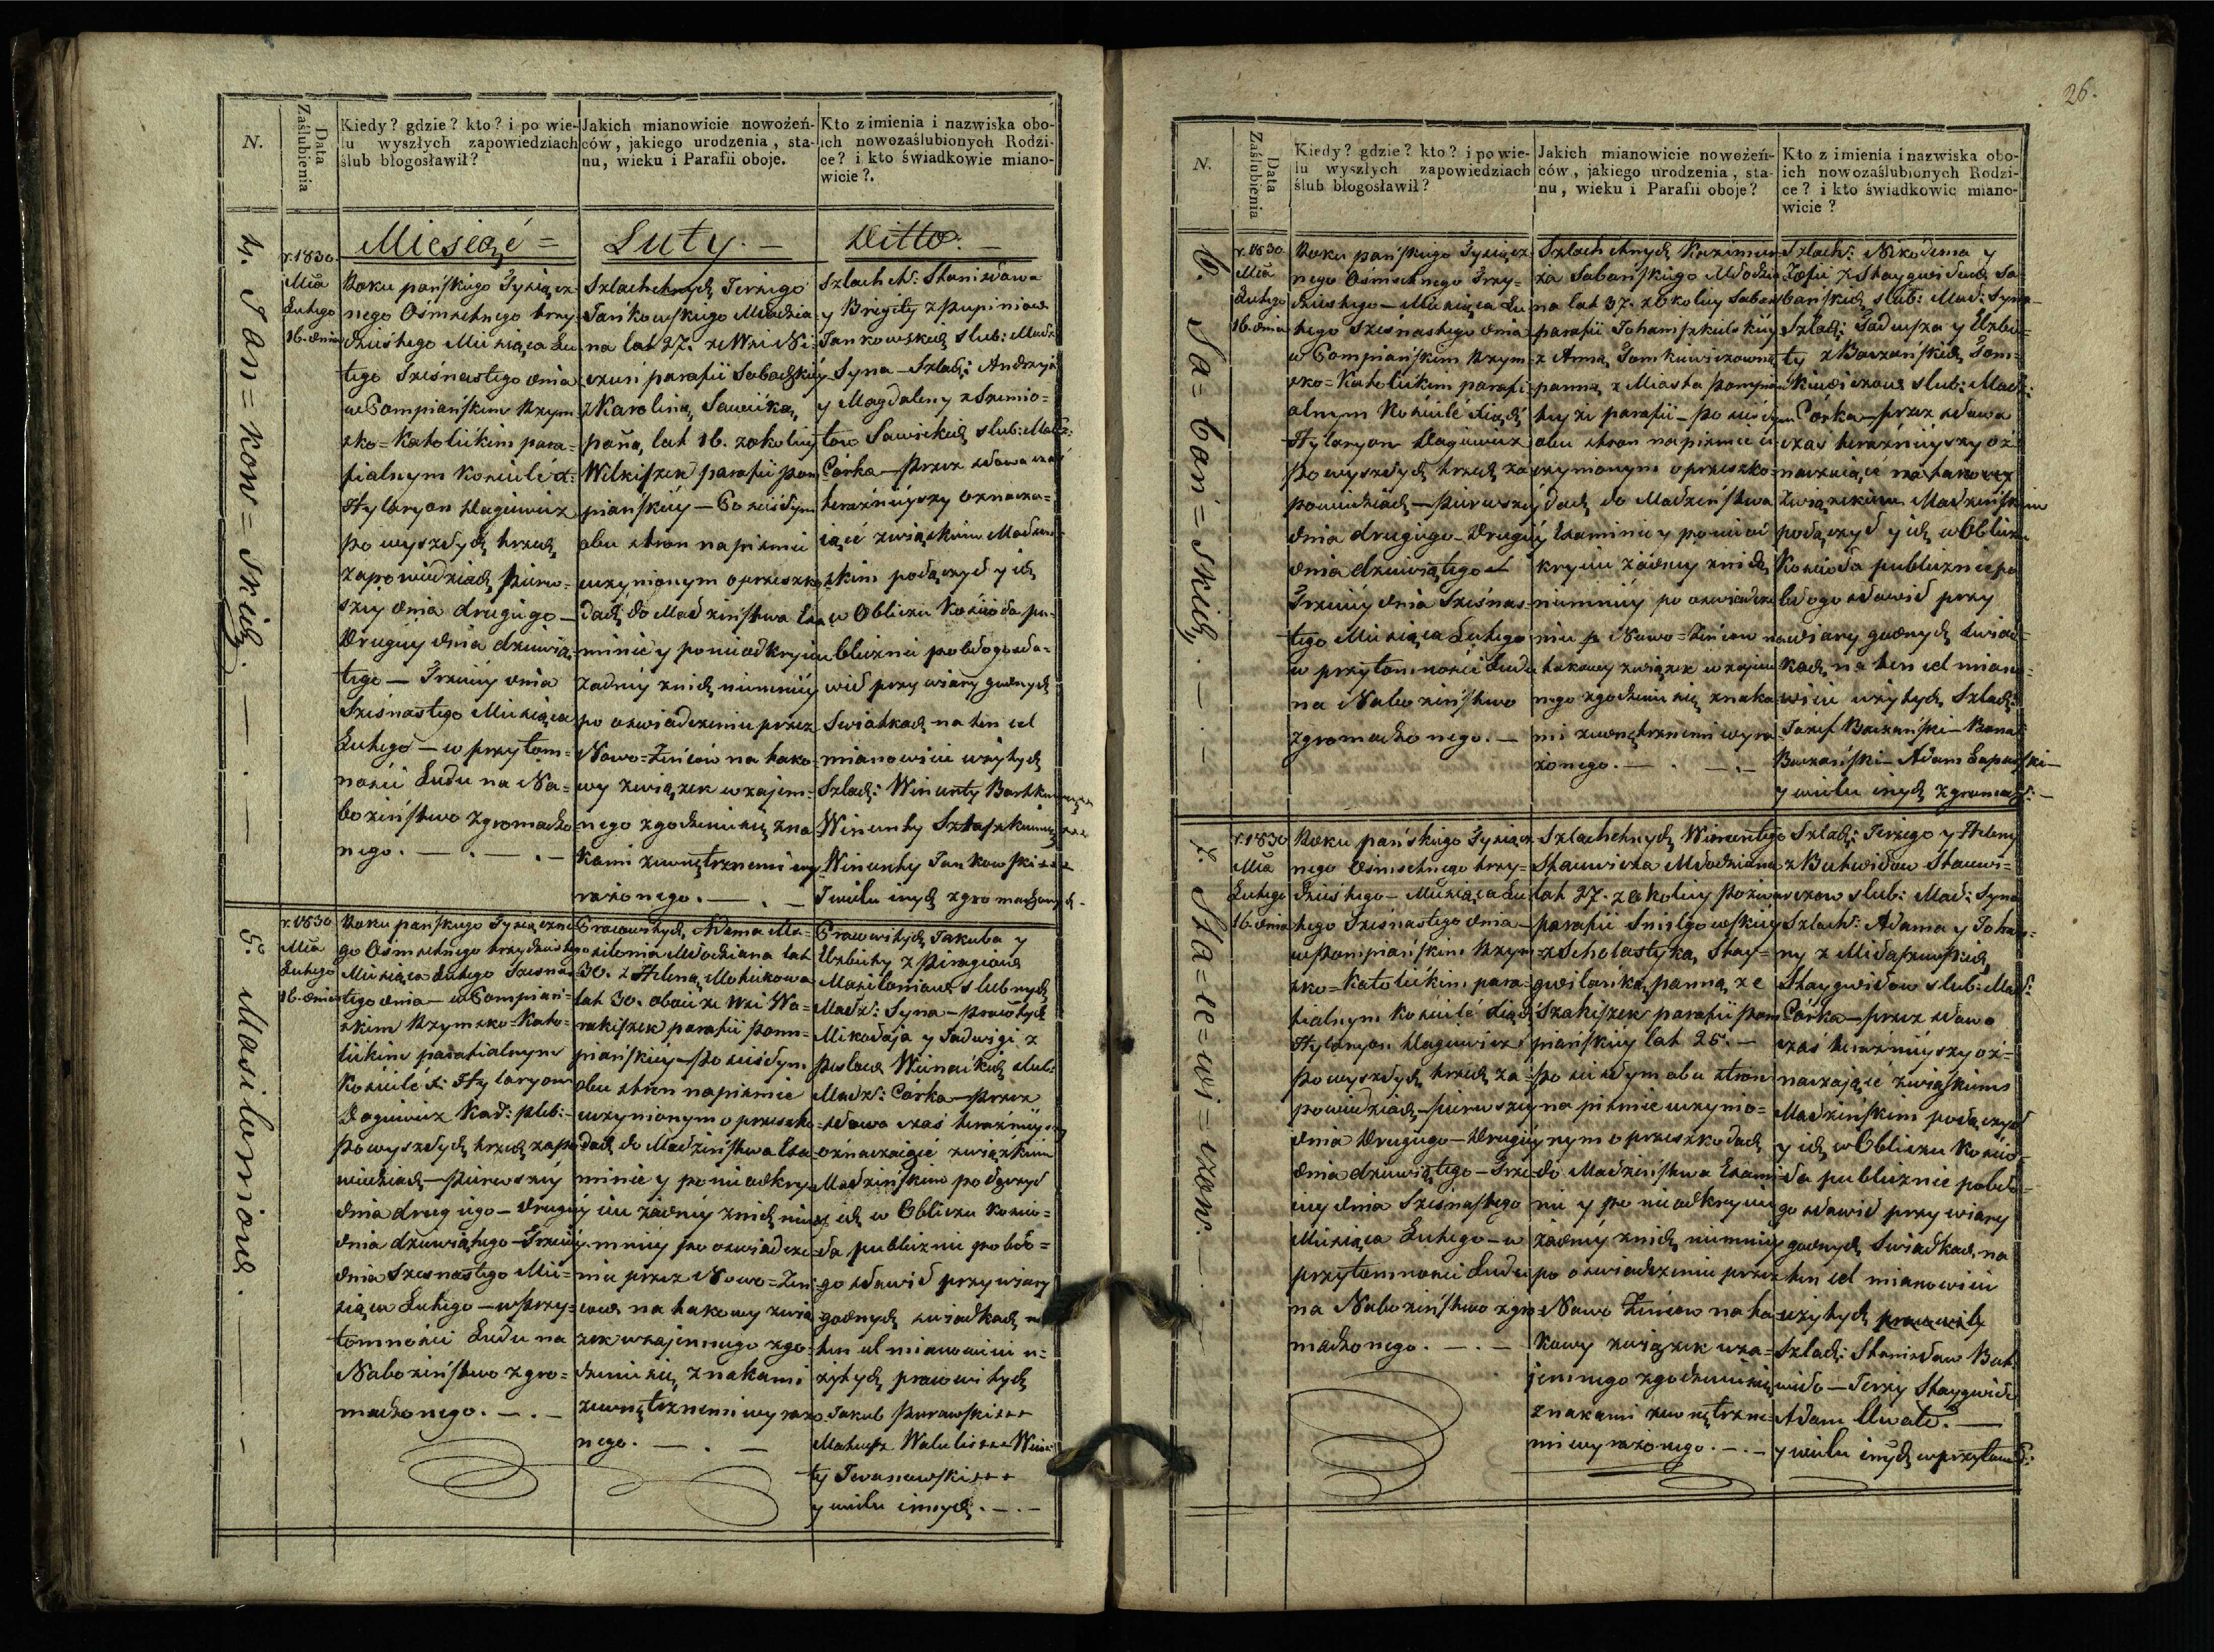 26.
N.
Data Zaślubienia
Kiedy? gdzie? kto? i po wie-
lu wyszłych zapowiedziach
ślub błogosławił?
Jakich mianowicie nowożeń-
ców, jakiego urodzenia, sta-
nu, wieku i Parafii oboje.
Kto z imienia i nazwiska obo-
ich nowozaślubionych Rodzi-
ce? i kto świadkowie miano-
wicie?.
Miesiąc = Luty. — Ditto. —
4. Jan=kow=skich.
r. 1830
Mca
Lutego
16. dnia
Roku pańskiego Tysiącz-
nego Ośmsetnego trzy-
dziestego Miesiąca Lu-
tego Szesnastego dnia
w Pompiańskim Rzym-
sko=Katolickim para-
fialnym Kościele X:
Hylaryon Dagiewicz
po wyszłych trzech
zapowiedziach pierw-
szey dnia drugiego —
Drugiey dnia dziewią-
tego — Trzeciey dnia
Szesnastego Miesiąca
Lutego — w przytom-
ności Ludu na Na-
bożeństwo zgromadzo-
nego. —
Szlachetnych Jerzego
Jankowskiego Młodzia-
na lat 27. ze Wsi
parafii
z Karoliną Sawicką
panną lat 16. z okolicy
Wilkiszek parafii Pom-
piańskiey — Po ścisłym
obu stron na piśmie
uczynionym o przeszko-
dach do Małżeństwa Exa-
minie y po nieodkryciu
żadney z nich niemniey
po oświadczeniu przez
Nowo=Żeńców na tako-
wy związek wzajem-
nego zgodzenia się zna-
kami zewnętrznemi wy-
rażonego. —
Szlachet: Stanisława
y Brygity z Pupiniow
Jankowskich slub: Małż:
Syna — Szlach: Andrzeja
y Magdaleny z
Sawickich slub: Małż:
Córka — przez słowa czas
teraznieyszy oznacza-
iące związkiem Małżeń-
skim połączył y ich
w Obliczu Kościoła pu-
blicznie pobłogosła-
wił przy wiary godnych
Swiatkach na ten cel
mianowicie użytych
Szlach:
Wincenty
Wincenty Jankowski +++
I wielu innych zgromadzonych —
5. Masiloniow.
r. 1830
Mca
Lutego
16. dnia
Roku pańskiego Tysiączne-
go Ośmsetnego trzydziestego
Miesiąca Lutego Szesnas-
tego dnia — w Pompiań-
skim Rzymsko=Kato-
lickim parafialnym
Kościele X: Hylaryon
Dagiewicz Kad: pleb: —
po wyszłych trzech zapo-
wiedziach — pierwszey
dnia drugiego — drugiey
dnia dziewiątego — Trzeciey
dnia Szesnastego Mie-
siąca Lutego — w przy-
tomności Ludu na
Nabożeństwo zgro-
madzonego. —
Pracowitych Adama Ma-
silonia Młodziana lat
30. z Heleną
lat 30. oboie ze Wsi Wa-
rakiszek parafii Pom-
piańskiey — po ścisłym
obu stron na piśmie
uczynionym o przeszko-
dach do Małżeństwa Exa-
minie y po nieodkry-
ciu żadney z nich nie-
mniey po oświadcze-
niu przez Nowo=Żeń-
ców na takowy zwią-
zek wzajemnego zgo-
dzenia się znakami
zewnętrznemi wyrażo-
nego. —
Pracowitych Jakuba y
Elżbiety z
Masiloniow slubnych
Małż: Syna — Pracowitych
Mikołaja y Jadwigi z
slub:
Małż: Córka — przez
słowa czas teraznieyszy
oznaczaiące związkiem
Małżeńskim połączył
y ich w Obliczu Kościo-
ła publicznie pobło-
gosławił przy wiary
godnych swiadkach na
ten cel mianowicie u-
żytych pracowitych
Jakub Purawski +++
Mateusz Walulis +++ Wincen-
ty Iwanawski +++
y wielu innych. —
N.
Data Zaślubienia
Kiedy? gdzie? kto? i po wie-
lu wyszłych zapowiedziach
ślub błogosławił?
Jakich mianowicie nowożeń-
ców, jakiego urodzenia, sta-
nu, wieku i Parafii oboje?
Kto z imienia i nazwiska obo-
ich nowozaślubionych Rodzi-
ce? i kto świadkowie miano-
wicie?
6. Sa=bań=skich.
r. 1830
Mca
Lutego
16. dnia
Roku pańskiego Tysiącz-
nego Ośmsetnego Trzy-
dziestego — Miesiąca Lu-
tego Szesnastego dnia
w Pompiańskim Rzym-
sko=Katolickim parafi-
alnym Kościele Xiądz
Hylaryon Dagiewicz
po wyszłych trzech za-
powiedziach — pierwszey
dnia drugiego — Drugiey
dnia dziewiątego —
Trzeciey dnia Szesnas-
tego Miesiąca Lutego
w przytomności Ludu
na Nabożeństwo
zgromadzonego. —
Szlachetnych Kazimie-
rza Sabańskiego Młodzia-
na lat 37. z okolicy
parafii Johaniszkielskiey
z Anną Tomkiewiczowną
panną z Miasta Pompian
tey że parafii — po ścisłym
obu stron na piśmie u-
czynionym o przeszko-
dach do Małżeństwa
Examinie y po nieod-
kryciu żadney z nich
niemniey po oświadcze-
niu p Nowo=Żeńcow na
takowy związek wzajem-
nego zgodzenia się znaka-
mi zewnętrznemi wyra-
żonego. —
Szlach: Nikodema y
Zofii z Staygwiłow Sa-
bańskich slub: Małż: Syna —
Szlach: Tadeusza y Elżbie-
ty z Barzańskich Tom-
kiewiczow slub: Małż:
Córka — przez słowa
czas teraznieyszy oz-
naczaiące na takowy
Związkiem Małżeńskim
połączył y ich w Obliczu
Kościoła publicznie po-
błogosławił przy
wiary godnych świad-
kach na ten cel miano-
wicie użytych Szlach:
Józef Barzański —
Barzański — Adam
y wielu innych zgromadz: —
7. Sta=ce=wi=czow.
r. 1830
Mca
Lutego
16. dnia
Roku pańskiego Tysiącz-
nego Ośmsetnego trzy-
dziestego — Miesiąca Lu-
tego Szesnastego dnia —
w Pompiańskim Rzym-
sko=Katolickim para-
fialnym Kościele Xiądz
Hylaryon Dagiewicz
po wyszłych trzech za-
powiedziach — pierwszey
dnia Drugiego — Drugiey
dnia dziewiątego — Trze-
ciey dnia Szesnastego
Miesiąca Lutego — w
przytomności Ludu
na Nabożeństwo zgro-
madzonego. —
Szlachetnych Wincentego
Stacewicza Młodziana
lat 27. z okolicy
parafii Smilgowskiey
z Scholastyką Stay-
gwilanką panną ze
Szakiszek parafii Pom-
piańskiey lat 25. —
po ścisłym obu stron
na piśmie uczynio-
nym o przeszkodach
do Małżeństwa Exami-
nie y po nieodkryciu
żadney z nich niemniey
po oświadczeniu przez
Nowo Żeńcow na ta-
kowy związek wza-
jemnego zgodzenia się
znakami zewnętrzne-
mi wyrażonego. —
Szlach: Jerzego y Heleny
z Butwiłow Stacewi-
czow slub: Małż: Syna
Szlach: Adama y Johan-
ny z
Staygwiłow slub: Małż:
Córka — przez słowa
czas teraznieyszy oz-
naczające związkiem
Małżeńskim połączył
y ich w Obliczu Kościo-
ła publicznie pobło-
gosławił przy wiary
godnych Swiadkach na
ten cel mianowicie
użytych
Szlach: Stanisław But-
wiło — Jerzy Staygwiło
Adam —
y wielu innych w przytomn: